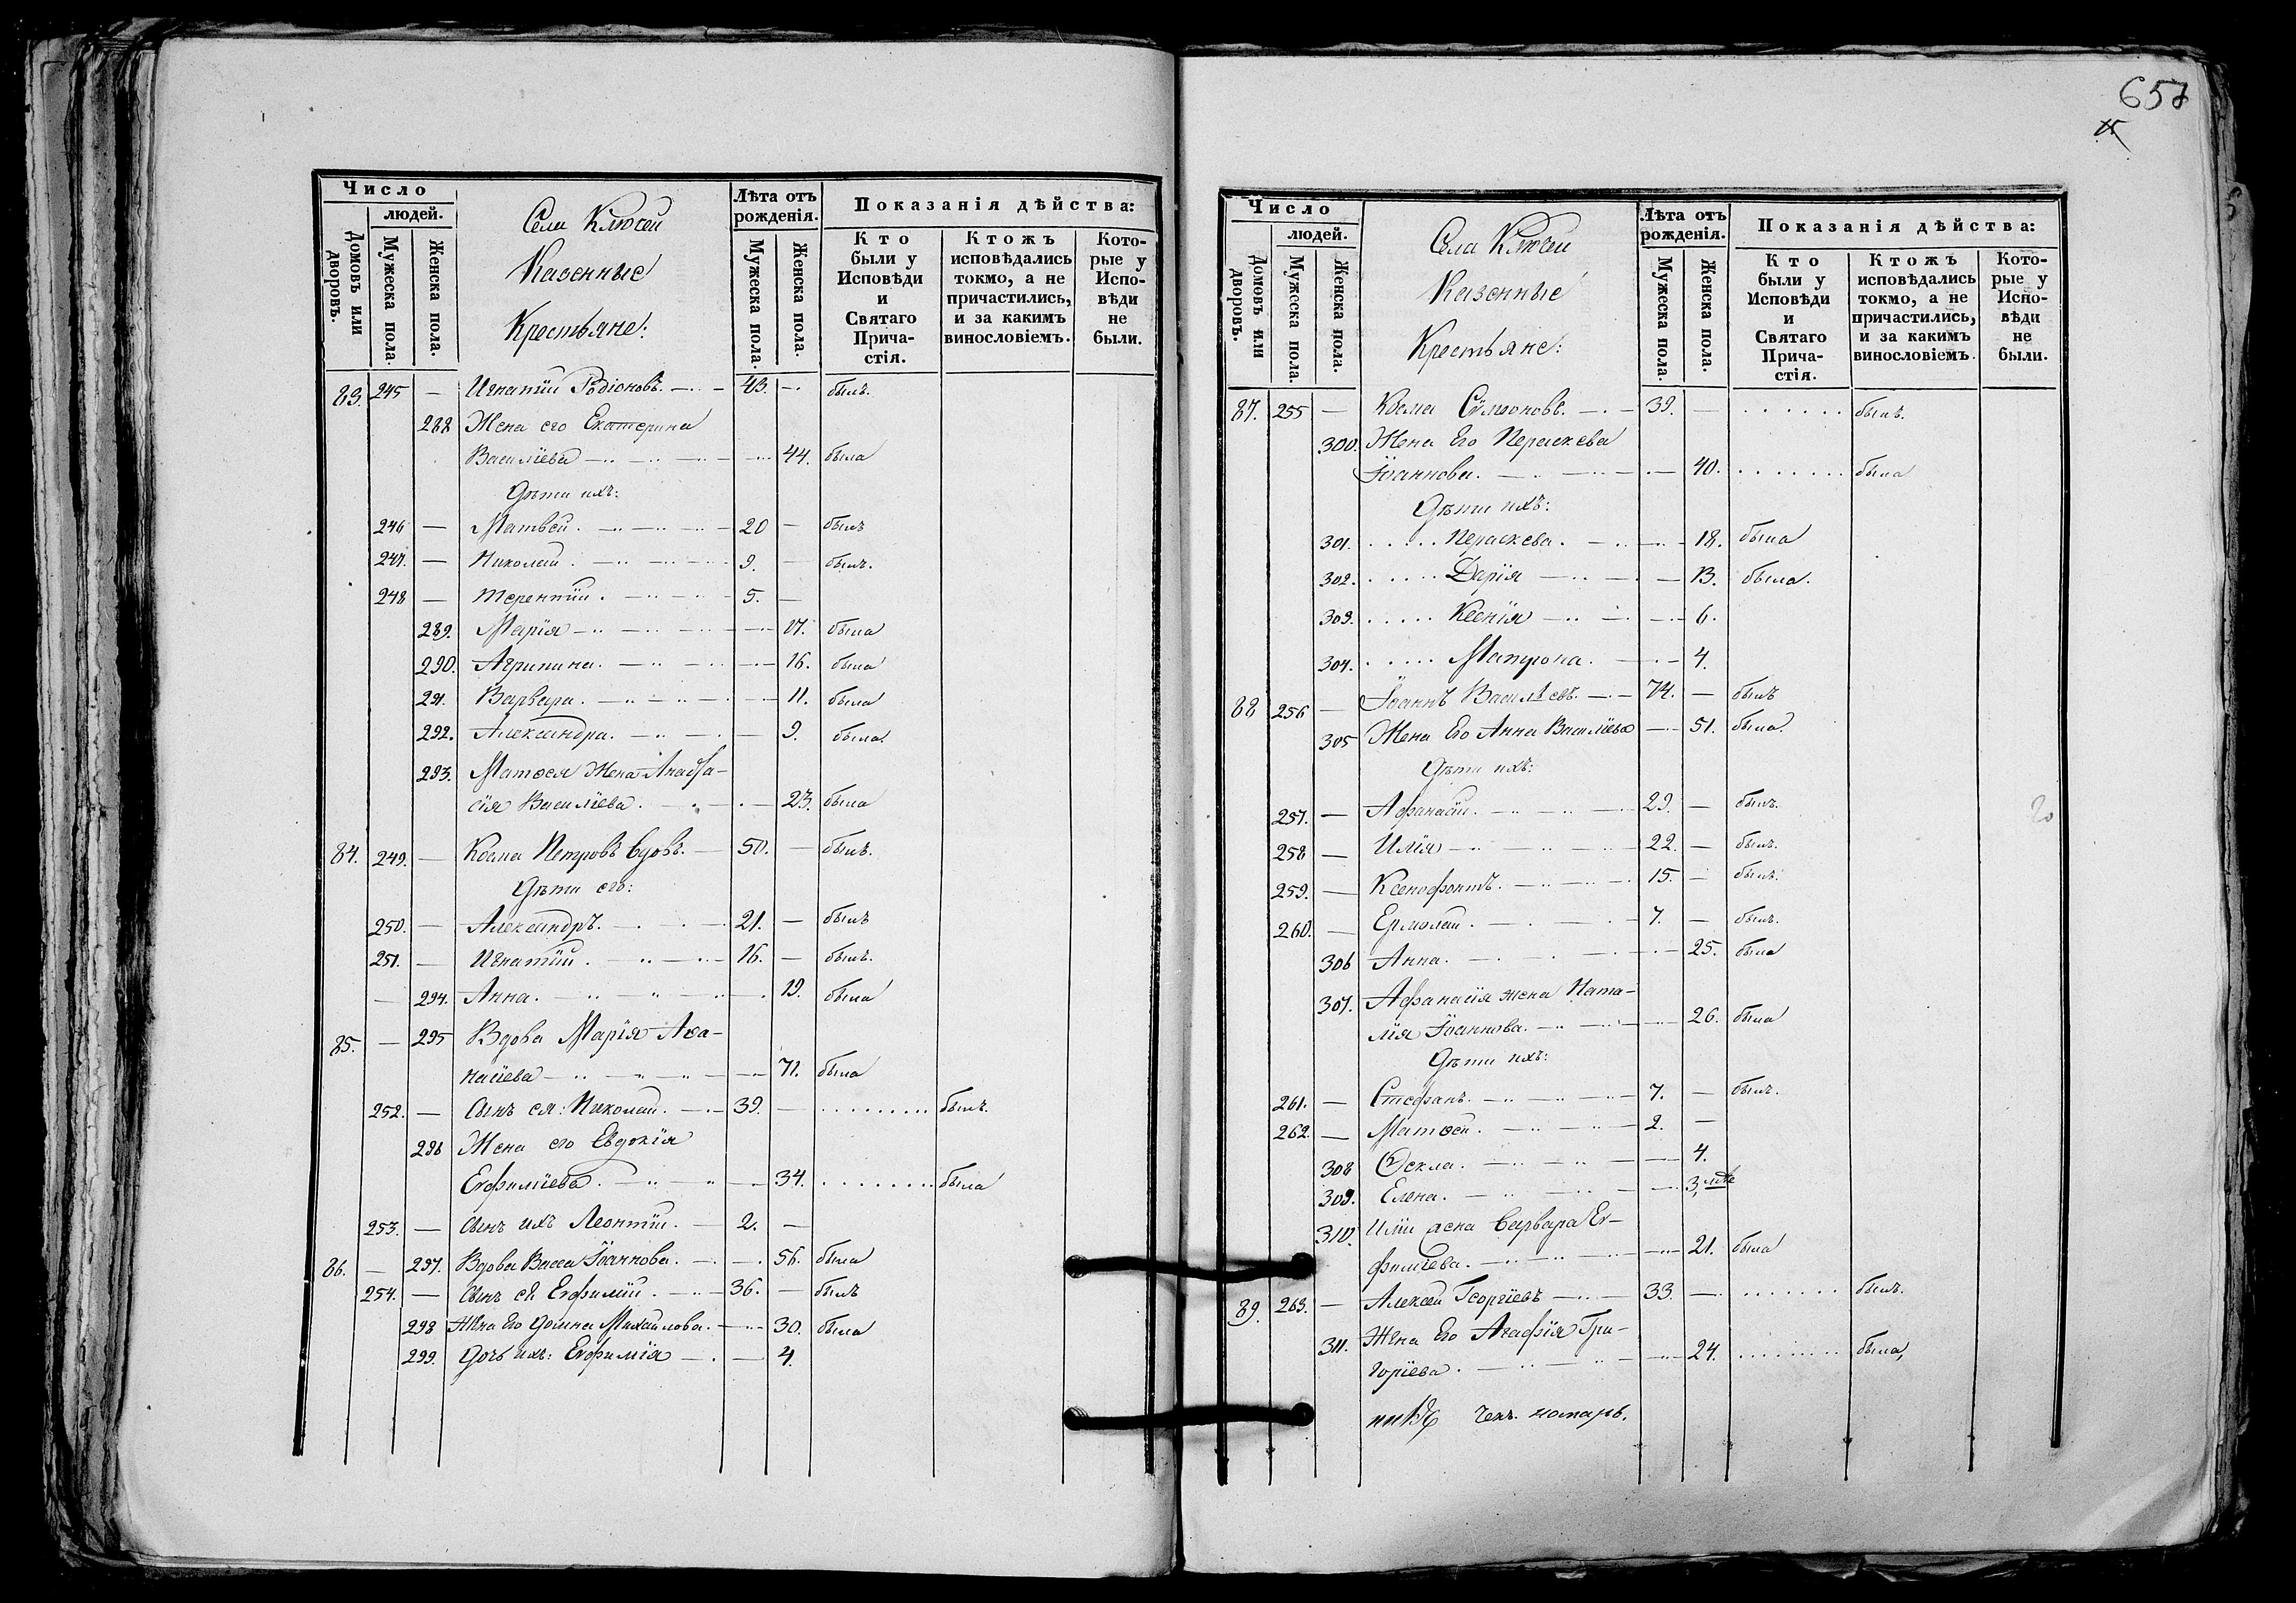 657
Число
людей.
Домовъ или дворовъ.
Мужеска пола.
Женска пола.
Села Ключей
Казенные
Крестьяне:
Лѣта отъ рожденія.
Мужеска пола.
Женска пола.
Показанія дѣйства:
Кто были у Исповѣди и Святаго Прича-стія.
Ктожъ исповѣдались токмо, а не причастились, и за какимъ винословіемъ.
Кото-рые у Испо-вѣди не были.
83. 245 — Игнатій Родіоновъ. — 43. — былъ.
288 Жена его Екатерина
Васильева — 44. была
Дѣти ихъ:
246 — Матвей. — 20 — былъ
247. — Николай. — 9. — былъ.
248 — Терентій. — 5. —
289. Марія — 17. была
290. Агрипина. — 16. была
291. Варвара. — 11. была
292. Александра. — 9. была.
293. Матѳея Жена Анаста-
сія Васильева. — 23. была
84. 249. — Козма Петровъ вдовъ. — 50. — былъ.
Дѣти его:
250. — Александръ. — 21. — былъ
251. — Игнатій. — 16. — былъ.
— 294. Анна. — 19. была
85. — 295 Вдова Марія Аѳа-
насіева — 71. была
252. — Сынъ ея: Николай. — 39. — ......... былъ.
296 Жена его Евдокія
Евфиміева. — 34. ......... была
253. — Сынъ ихъ Леонтій. — 2. —
86. — 297. Вдова Васса Іоаннова. — 56. была
254. — Сынъ ея Евфимій. — 36. — былъ
298 Жена Его Домна Михайлова. — 30. была
299. Дочь ихъ: Евфимія — 4.
Число
людей.
Домовъ или дворовъ.
Мужеска пола.
Женска пола.
Села Ключей
Казенные
Крестьяне:
Лѣта отъ рожденія.
Мужеска пола.
Женска пола.
Показанія дѣйства:
Кто были у Исповѣди и Святаго Прича-стія.
Ктожъ исповѣдались токмо, а не причастились, и за какимъ винословіемъ.
Кото-рые у Испо-вѣди не были.
87. 255 — Козма Сѵмеоновъ. — 39. — ...... былъ.
300. Жена Его Параскева
Іоаннова. — 40. ....... была
Дѣти ихъ:
301. ..... Параскева. — 18. была
302. ..... Дарія — 13. была.
303. ..... Ксенія — 6.
304. ..... Матрона. — 4.
88 256 — Іоаннъ Васильевъ. — 74. — былъ
305 Жена Его Анна Васильева — 51. была.
Дѣти ихъ:
257. — Афанасій. — 29. — былъ.
258 — Илія — 22. — былъ.
259. — Ксенофонтъ. — 15. — былъ.
260. — Ермолай. — 7. — былъ.
306 Анна. — 25. была
307. Афанасія жена Ната-
лія Іоаннова. — 26. была
Дѣти ихъ:
261. — Стефанъ. — 7. — былъ.
262. — Матѳей. — 2. —
308 Ѳекла. — 4.
309. Елена. — 3.
310. Иліи жена Варвара Ев-
фиміева. — 21. была
89. 263. — Алексей Георгіевъ — 33. — ....... былъ.
311. Жена Его Агафія Гри-
горіева. — 24. ......... была,